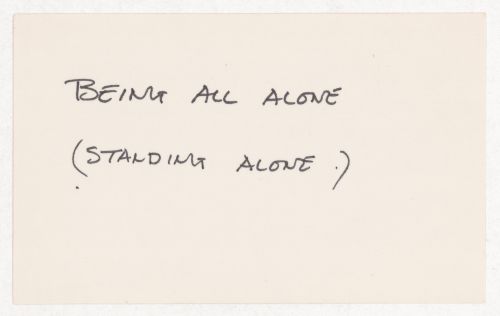 BEING ALL ALONE
(STANDING ALONE.)